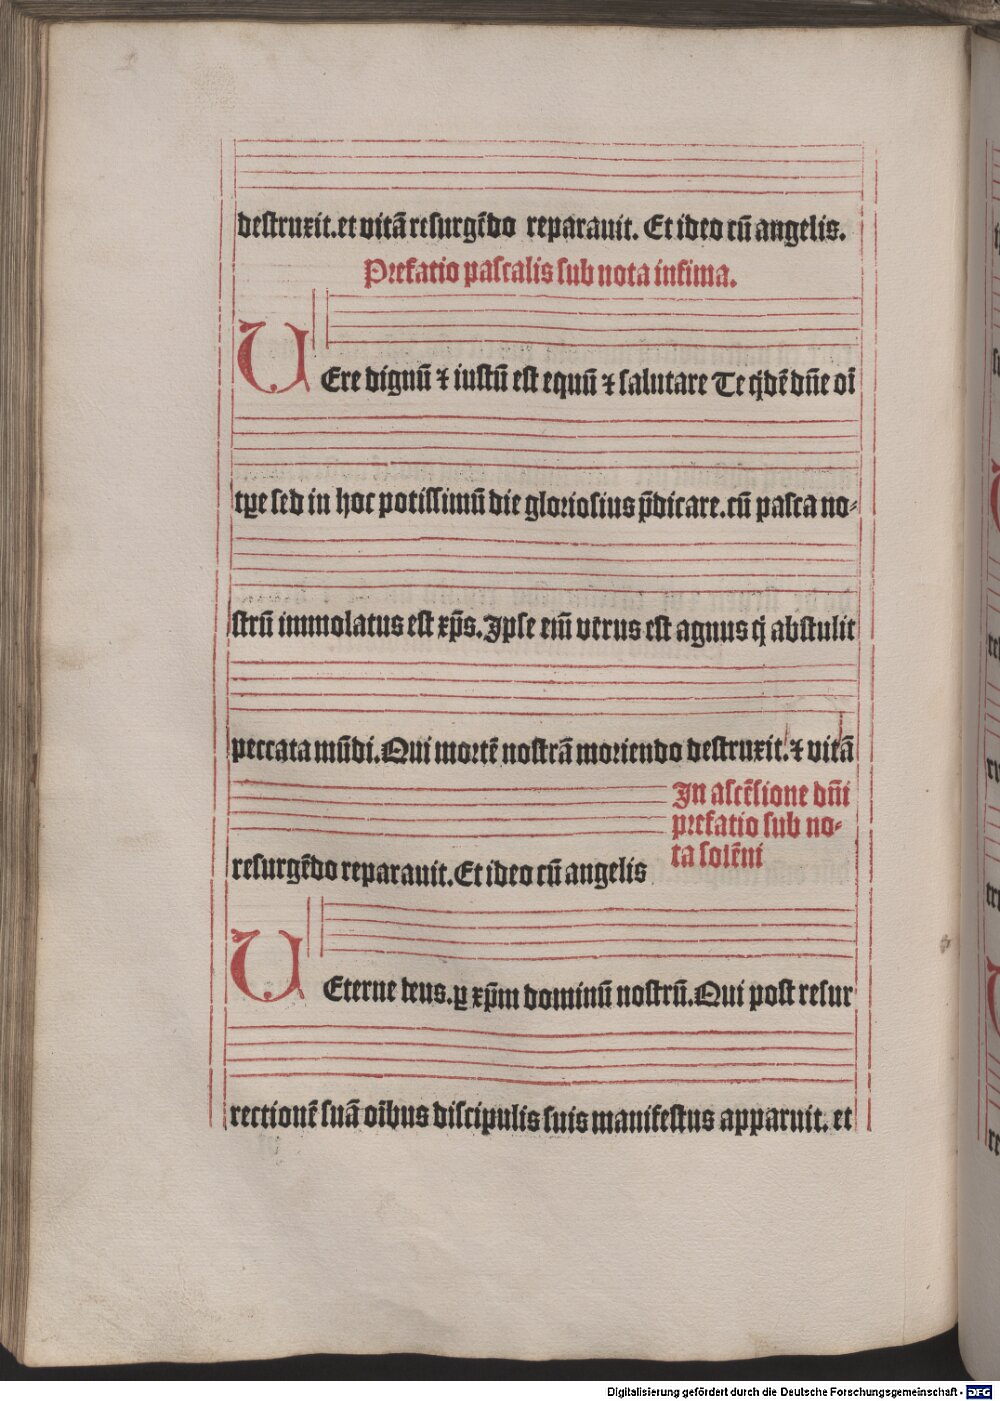 destruxit.et vitā resurgēdo reparauit. Et ideo cū angelis.
Prefatio pascalis sub nota infima.
VEre dignū ⁊ iustū est equū ⁊ salutare Te q̇dē dn̄e oī
tꝑe sed in hoc potissimū die gloriosius p̄dicare.cū pasca no-
strū immolatus est xp̄s. Ipse eīn verus est agnus q̇ abstulit
peccata mūdi.Qui mortē nostrā moriendo destruxit.⁊ vitā
resurgēdo reparauit.Et ideo cū angelis
In ascēsione dn̄i
prefatio sub no-
ta solēni
VEterne deus.ꝑ xp̄m dominū nostrū.Qui post resur
rectionē suā oībus discipulis suis manifestus apparuit. et
Digitalisierung gefördert durch die Deutsche Forschungsgemeinschaft - DFG